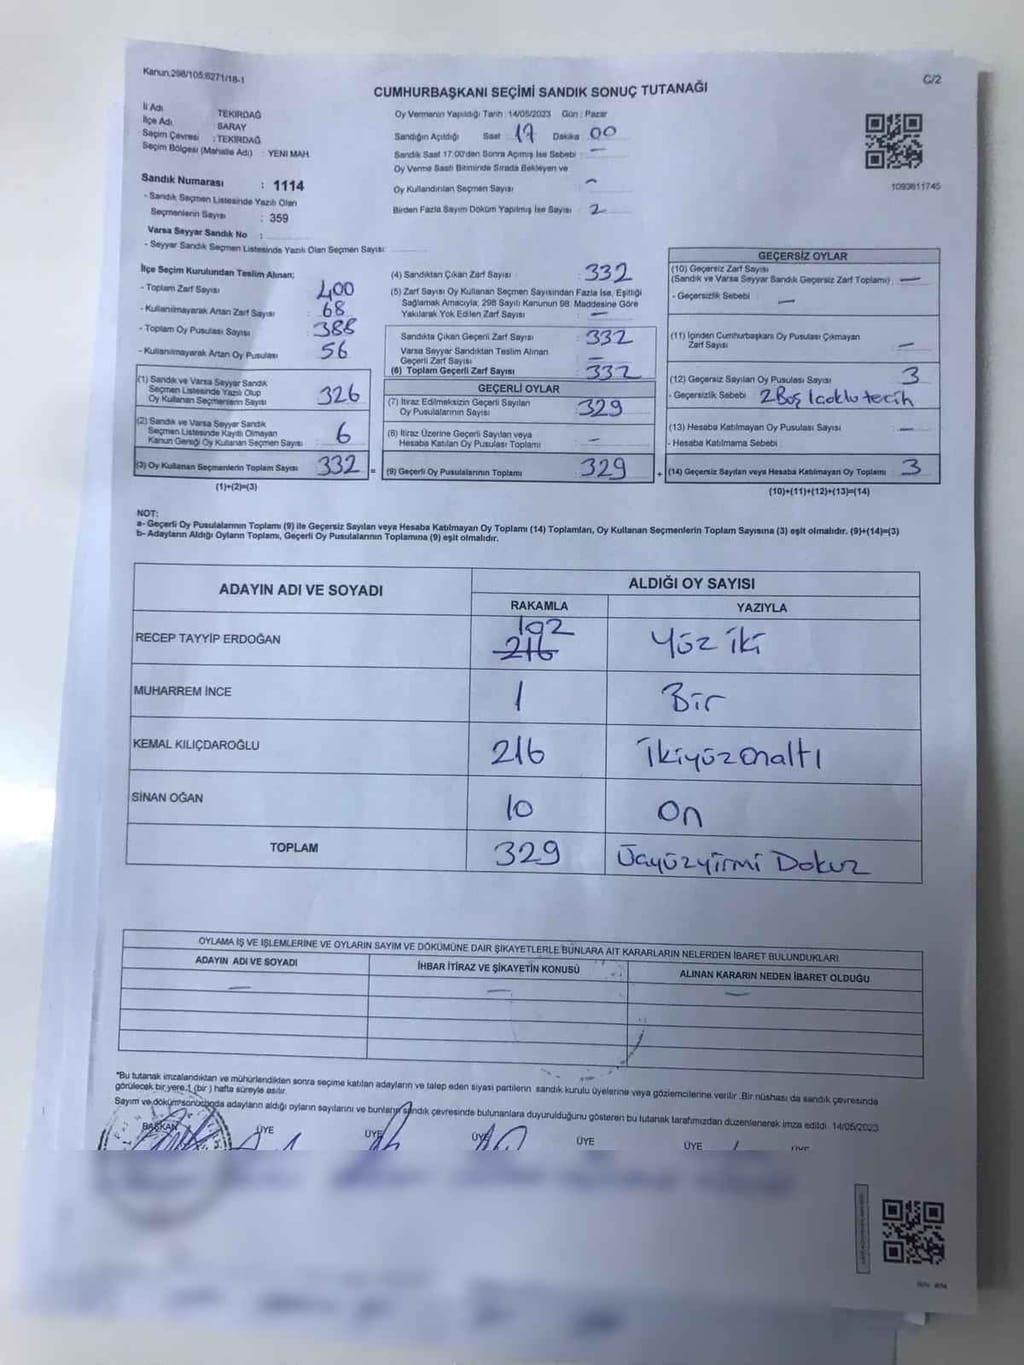 Kanun;298/105;6271/18-1
C/2
CUMHURBAŞKANI SEÇİMİ SANDIK SONUÇ TUTANAĞI
İl Adı TEKİRDAĞ
İlçe Adı SARAY
Seçim Çevresi : TEKİRDAĞ
Seçim Bölgesi (Mahalle Adı) : YENİ MAH.
Oy Vermenin Yapıldığı Tarih :14/05/2023 Gün : Pazar
Sandığın Açıldığı Saat : 17 Dakika 00
Sandık Saat 17:00'den Sonra Açılmış İse Sebebi : —
Oy Verme Saati Bitiminde Sırada Bekleyen ve
Oy Kullandırılan Seçmen Sayısı —
Birden Fazla Sayım Döküm Yapılmış İse Sayısı : 2
1093811745
Sandık Numarası : 1114
- Sandık Seçmen Listesinde Yazılı Olan
Seçmenlerin Sayısı : 359
Varsa Seyyar Sandık No :
- Seyyar Sandık Seçmen Listesinde Yazılı Olan Seçmen Sayısı:
İlçe Seçim Kurulundan Teslim Alınan;
- Toplam Zarf Sayısı : 400
- Kullanılmayarak Artan Zarf Sayısı : 68
- Toplam Oy Pusulası Sayısı : 388
- Kullanılmayarak Artan Oy Pusulası : 56
(1) Sandık ve Varsa Seyyar Sandık
Seçmen Listesinde Yazılı Olup
Oy Kullanan Seçmenlerin Sayısı : 326
(2) Sandık ve Varsa Seyyar Sandık
Seçmen Listesinde Kayıtlı Olmayan
Kanun Gereği Oy Kullanan Seçmen Sayısı : 6
(3) Oy Kullanan Seçmenlerin Toplam Sayısı : 332 =
(1)+(2)=(3)
(4) Sandıktan Çıkan Zarf Sayısı : 332
(5) Zarf Sayısı Oy Kullanan Seçmen Sayısından Fazla İse, Eşitliği
Sağlamak Amacıyla; 298 Sayılı Kanunun 98. Maddesine Göre
Yakılarak Yok Edilen Zarf Sayısı : —
Sandıkta Çıkan Geçerli Zarf Sayısı : 332
Varsa Seyyar Sandıktan Teslim Alınan
Geçerli Zarf Sayısı : —
(6) Toplam Geçerli Zarf Sayısı : 332
GEÇERLİ OYLAR
(7) İtiraz Edilmeksizin Geçerli Sayılan
Oy Pusulalarının Sayısı : 329
(8) İtiraz Üzerine Geçerli Sayılan veya
Hesaba Katılan Oy Pusulası Toplamı : —
(9) Geçerli Oy Pusulalarının Toplamı : 329 +
GEÇERSİZ OYLAR
(10) Geçersiz Zarf Sayısı
(Sandık ve Varsa Seyyar Sandık Geçersiz Zarf Toplamı) : —
- Geçersizlik Sebebi : —
(11) İçinden Cumhurbaşkanı Oy Pusulası Çıkmayan
Zarf Sayısı : —
(12) Geçersiz Sayılan Oy Pusulası Sayısı : 3
- Geçersizlik Sebebi 2Boş
(13) Hesaba Katılmayan Oy Pusulası Sayısı : —
- Hesaba Katılmama Sebebi :
(14) Geçersiz Sayılan veya Hesaba Katılmayan Oy Toplamı : 3
(10)+(11)+(12)+(13)=(14)
NOT:
a- Geçerli Oy Pusulalarının Toplamı (9) ile Geçersiz Sayılan veya Hesaba Katılmayan Oy Toplamı (14) Toplamları, Oy Kullanan Seçmenlerin Toplam Sayısına (3) eşit olmalıdır. (9)+(14)=(3)
b- Adayların Aldığı Oyların Toplamı, Geçerli Oy Pusulalarının Toplamına (9) eşit olmalıdır.
ADAYIN ADI VE SOYADI ALDIĞI OY SAYISI
RAKAMLA YAZIYLA
RECEP TAYYİP ERDOĞAN 102 216 Yüz iki
MUHARREM İNCE 1 Bir
KEMAL KILIÇDAROĞLU 216 İkiyüzonaltı
SİNAN OĞAN 10 On
TOPLAM 329 Üçyüzyirmi Dokuz
OYLAMA İŞ VE İŞLEMLERİNE VE OYLARIN SAYIM VE DÖKÜMÜNE DAİR ŞİKAYETLERLE BUNLARA AİT KARARLARIN NELERDEN İBARET BULUNDUKLARI
ADAYIN ADI VE SOYADI İHBAR İTİRAZ VE ŞİKAYETİN KONUSU ALINAN KARARIN NEDEN İBARET OLDUĞU
— — —
*Bu tutanak imzalandıktan ve mühürlendikten sonra seçime katılan adayların ve talep eden siyasi partilerin sandık kurulu üyelerine veya gözlemcilerine verilir .Bir nüshası da sandık çevresinde
görülecek bir yere 1 (bir ) hafta süreyle asılır.
Sayım ve döküm sonucunda adayların aldığı oyların sayılarını ve bunların sandık çevresinde bulunanlara duyurulduğunu gösteren bu tutanak tarafımızdan düzenlenerek imza edildi. 14/05/2023
BAŞKAN ÜYE ÜYE ÜYE ÜYE ÜYE ÜYE